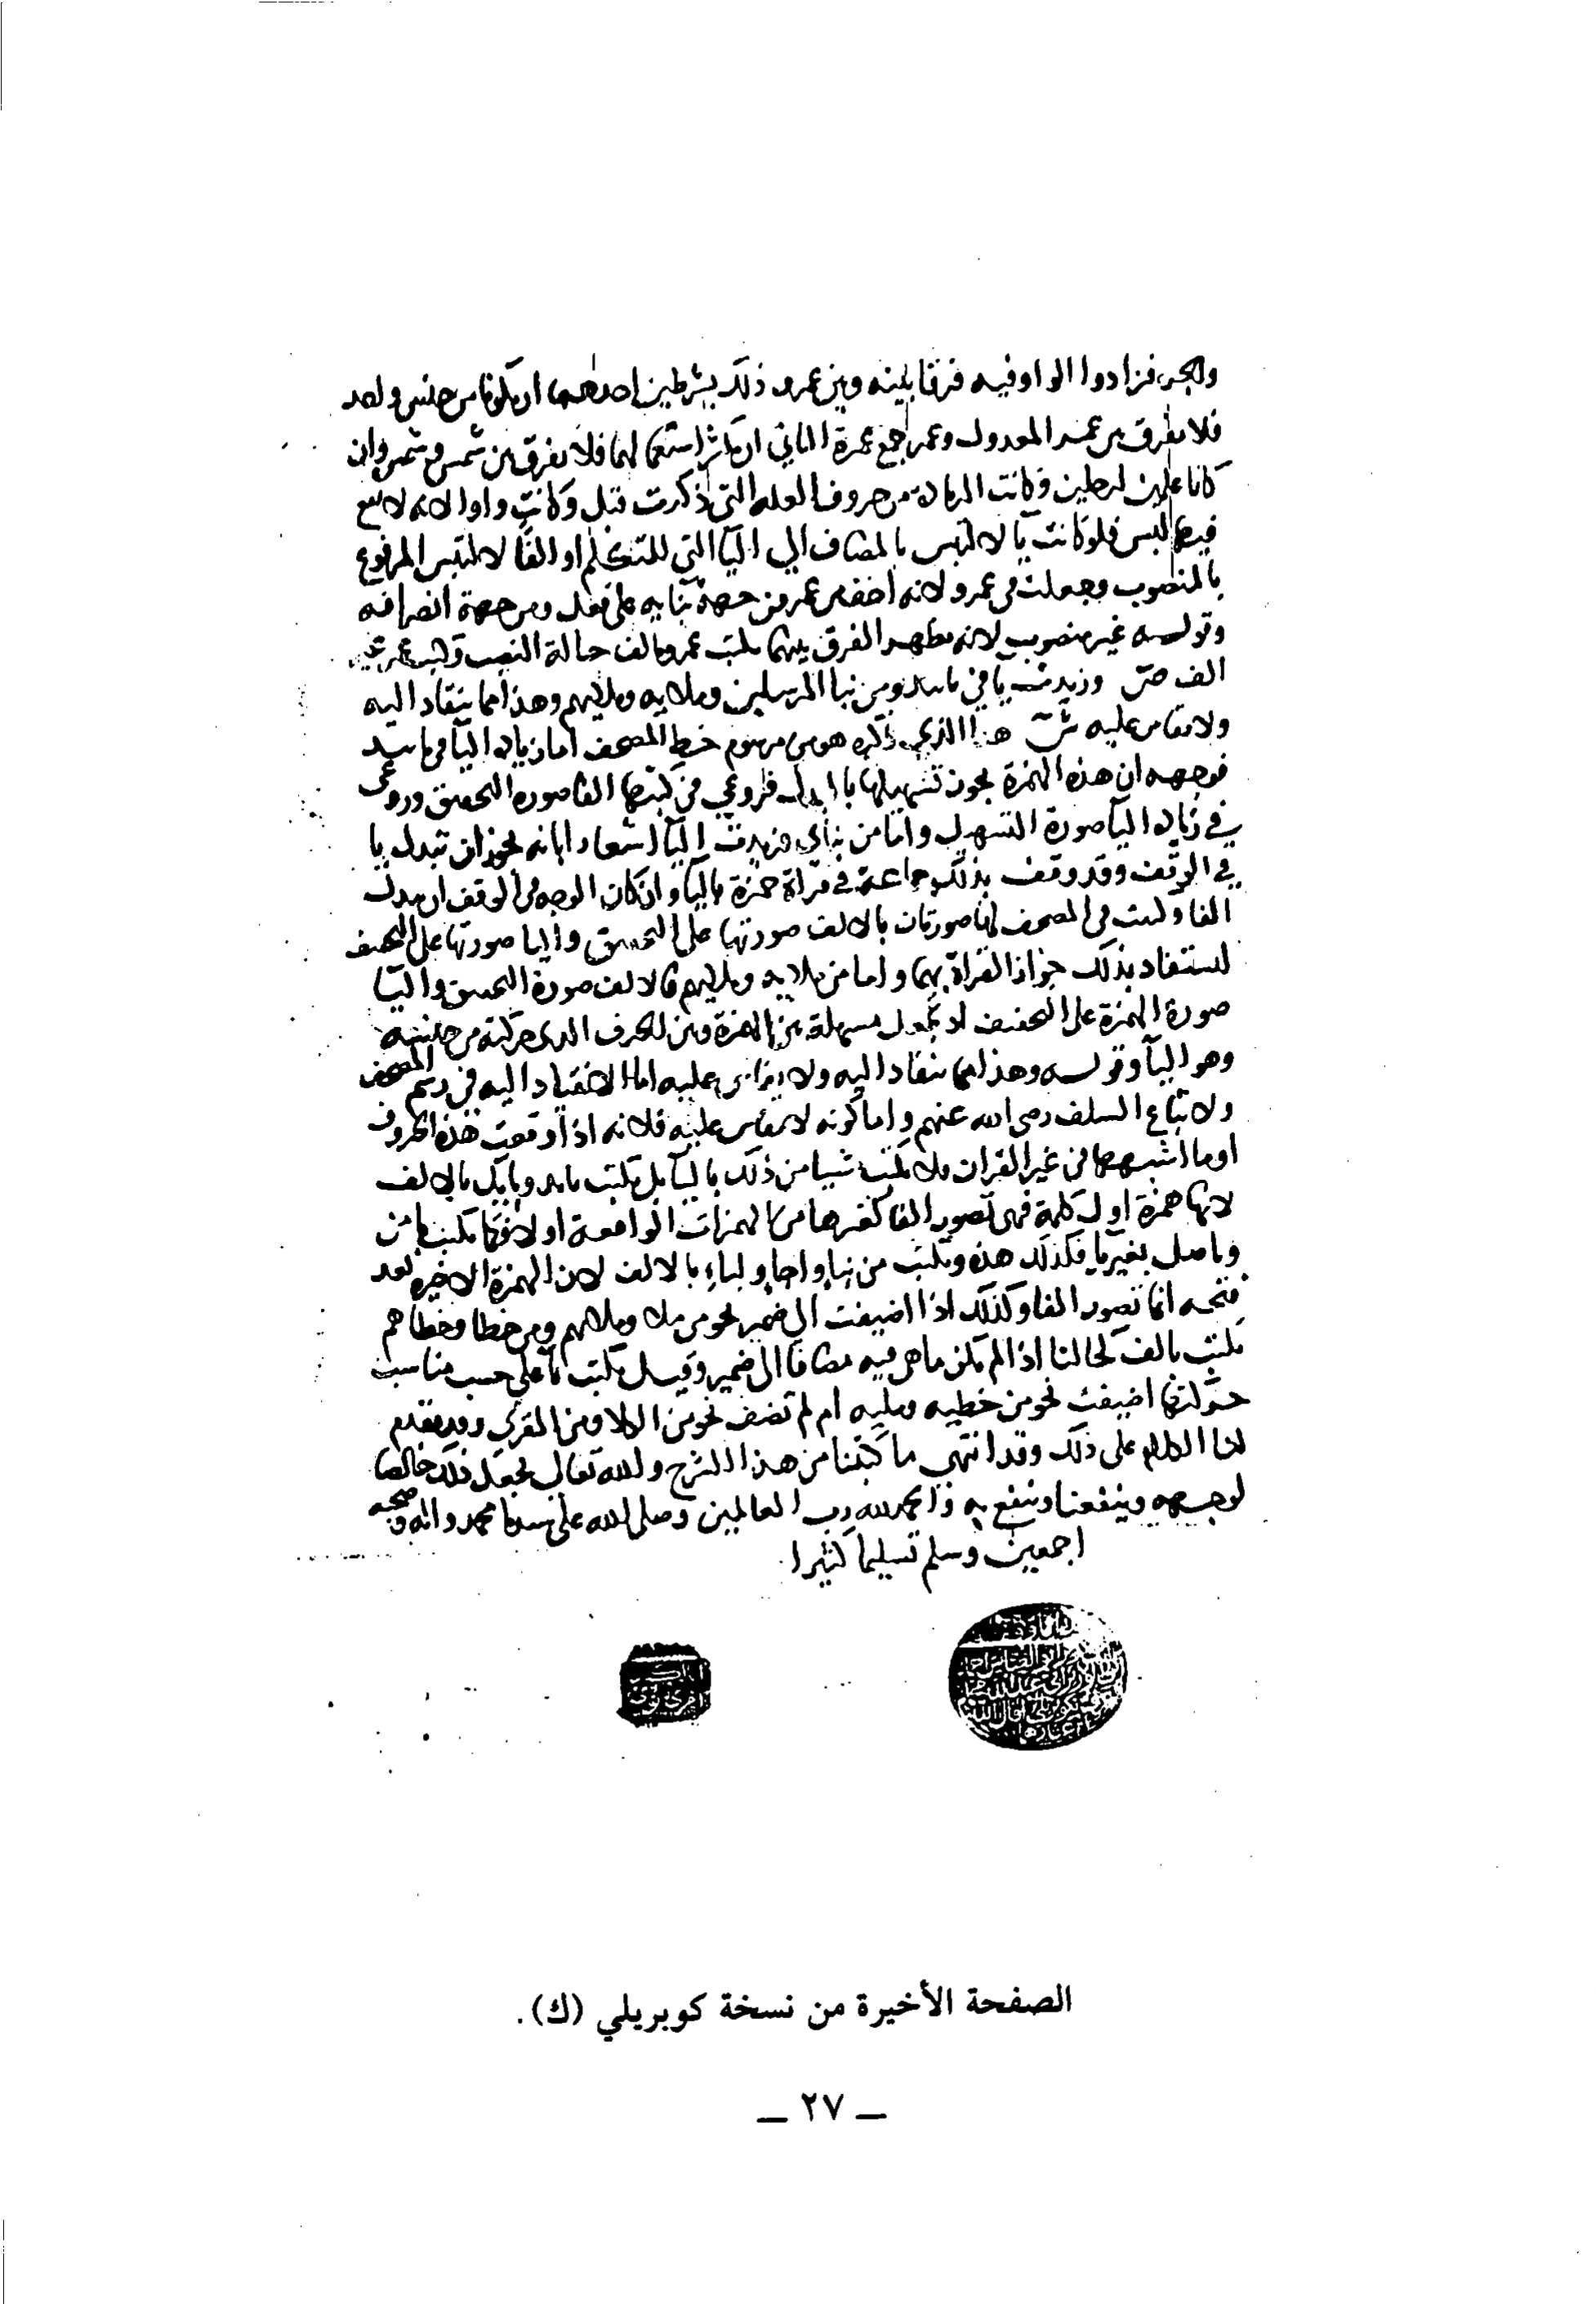 والجر فزادوا الواو فيه فرقا بينه وبين عمر وذلك بشرطين احدهما ان يكونا من جنس واحد
فلا يفرق بين عمر المعدول وعمر جمع عمرة الثاني ان يكثر استعمالهما فلا يفرق بين شمس وشمس وان
كانا علمين لرجلين وكانت الزيادة من حروف العله التي ذكرت قبل وكانت واوا لانه لا يقع
فيها لبس فلو كانت يآ لالتبس بالمضاف الي اليآ التي للمتكلم او الفا لالتبس المرفوع
بالمنصوب وجعلت في عمرو لانه اخف من عمر من جهة بنايه على فعل ومن جهة انصرافه
وقولـه غير منصوب لانه يظهر الفرق بينهما يكتب عمرو بالف حالة النصب ويكتب عمر بغير
الف ص وزيدت يآ في باييد ومن نبا المرسلين وملايه وملايهم وهذا مما ينقاد اليه
ولا يقاس عليه ش هذا الذي ذكره هو من مرسوم خط المصحف اما زيادة اليآ في باييد
فوجهه ان هذه الهمزة يجوز تسهيلها بالابدال فروعي في كتبها الفا صورة التحقيق وروعي
في زيادة اليآ صورة التسهيل واما من نبأي فزيدت اليآ اشعارا بانه يجوز ان تبدل يا
في الوقف وقد وقف بذلك جماعة في قراة حمزة باليآ وان كان الوجه في الوقف ان يبدل
الفا وكتبت في المصحف لها صورتان بالالف صورتها على التحقيق واليا صورتها على التخفيف
لستفاد بذلك جواز القراة بهما واما من ملايه وملايهم فالالف صورة التحقيق واليآ
صورة الهمزة على التخفيف اذ تجعل مسهلة بين الهمزة وبين الحرف الذي حركته من جنسه
وهو اليآ وقولـه وهذا مما ينقاد اليه ولا يقاس عليه اما الانقياد اليه في رسم المصحف
ولاتباع السلف رضى الله عنهم واما كونه لا يقاس عليه فلانه اذا وقعت هذه الحروف
او ما اشبهها في غير القران فلا يكتب شيا من ذلك باليآ بل يكتب بايد وبايك بالالف
لانها همزة اول كلمة فهى تصور الفا كغيرها من الهمزات الواقعة اولا فكما يكتب بامن
وباصل بغير يا فكذلك هذه ويكتب من نبا واجا ولبا بالالف لان الهمزة الاخيرة بعد
فتحه انما تصور الفا وكذلك اذا اضيفت الى ضمير نحو من ملاه وملاهم ومن خطا وخطاهم
يكتب بالف كحالنا اذا لم يكن ما هى فيه مضافا الى ضمير وقيـل يكتب يآ على حسب مناسبت
حركتها اضيفت نحو من خطيه ومليه ام لم تضف نحو من الكلا ومن المقري وقد تقدم
لنا الكلام على ذلك وقد انتهى ما كتبنا من هذا الشرح والله تعالى يجعل ذلك خالصا
لوجـهه وينفعنا وينفع به والحمد لله رب العالمين وصلى الله على سيدنا محمد واله وصحبه
اجمعين وسلم تسليما كثيرا
الصفحة الأخيرة من نسخة كوبريلي (ك).
— ٢٧ —